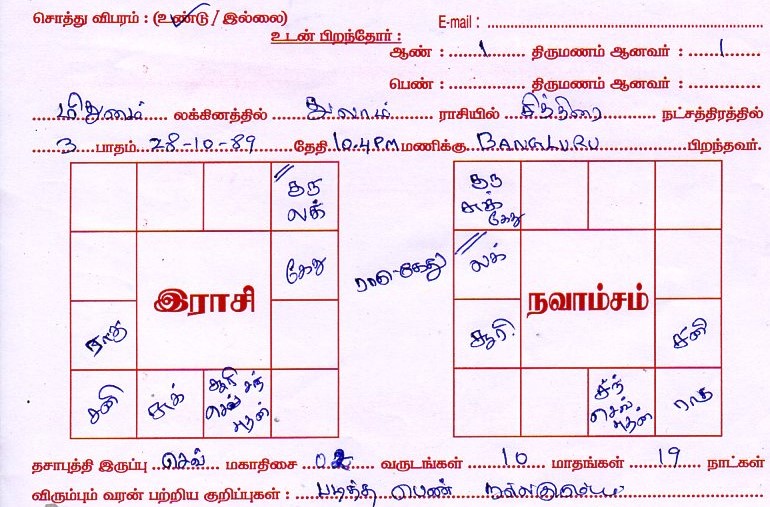 சொத்து விபரம் : (உண்டு / இல்லை)
E-mail :
உடன் பிறந்தோர் :
ஆண் : 1 திருமணம் ஆனவர் : 1
பெண் : திருமணம் ஆனவர் :
மிதுனம் லக்கினத்தில் துலாம் ராசியில் சித்திரை நட்சத்திரத்தில்
3 பாதம் 28-10-89 தேதி 10.4PM மணிக்கு BANGLURU பிறந்தவர்.
குரு
லக்
கேது
இராசி
ராகு
சனி
சுக்
சூரி சந்
செவ்
புதன்
ராகு-கேது
குரு
சுக்
கேது
லக்
நவாம்சம்
சூரி
சனி
சந்
செவ்
புதன்
ராகு
தசாபுத்தி இருப்பு செவ் மகாதிசை வருடங்கள் 10 மாதங்கள் 19 நாட்கள்
விரும்பும் வரன் பற்றிய குறிப்புகள் : படித்த பெண்